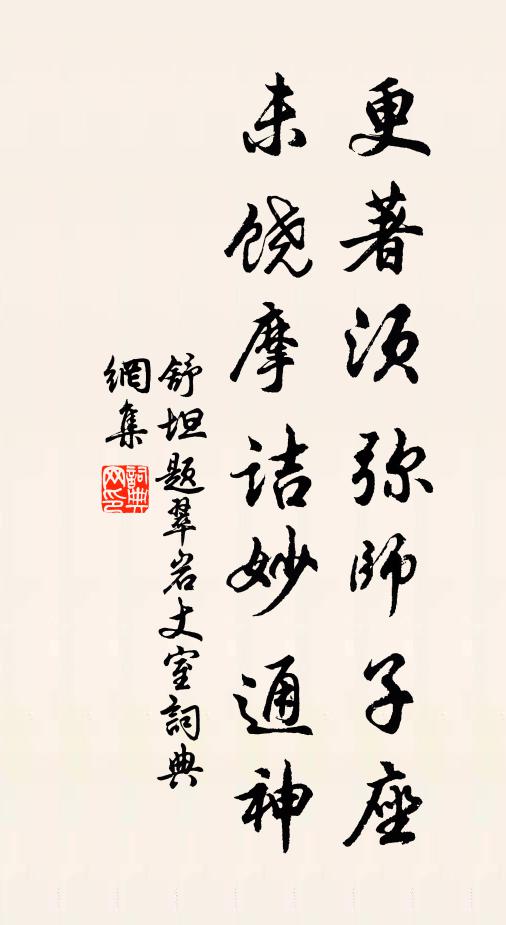 更著须弥师子座
未饶摩诘妙通神
舒坦题翠岩丈室詞典
網集
詞典
网印